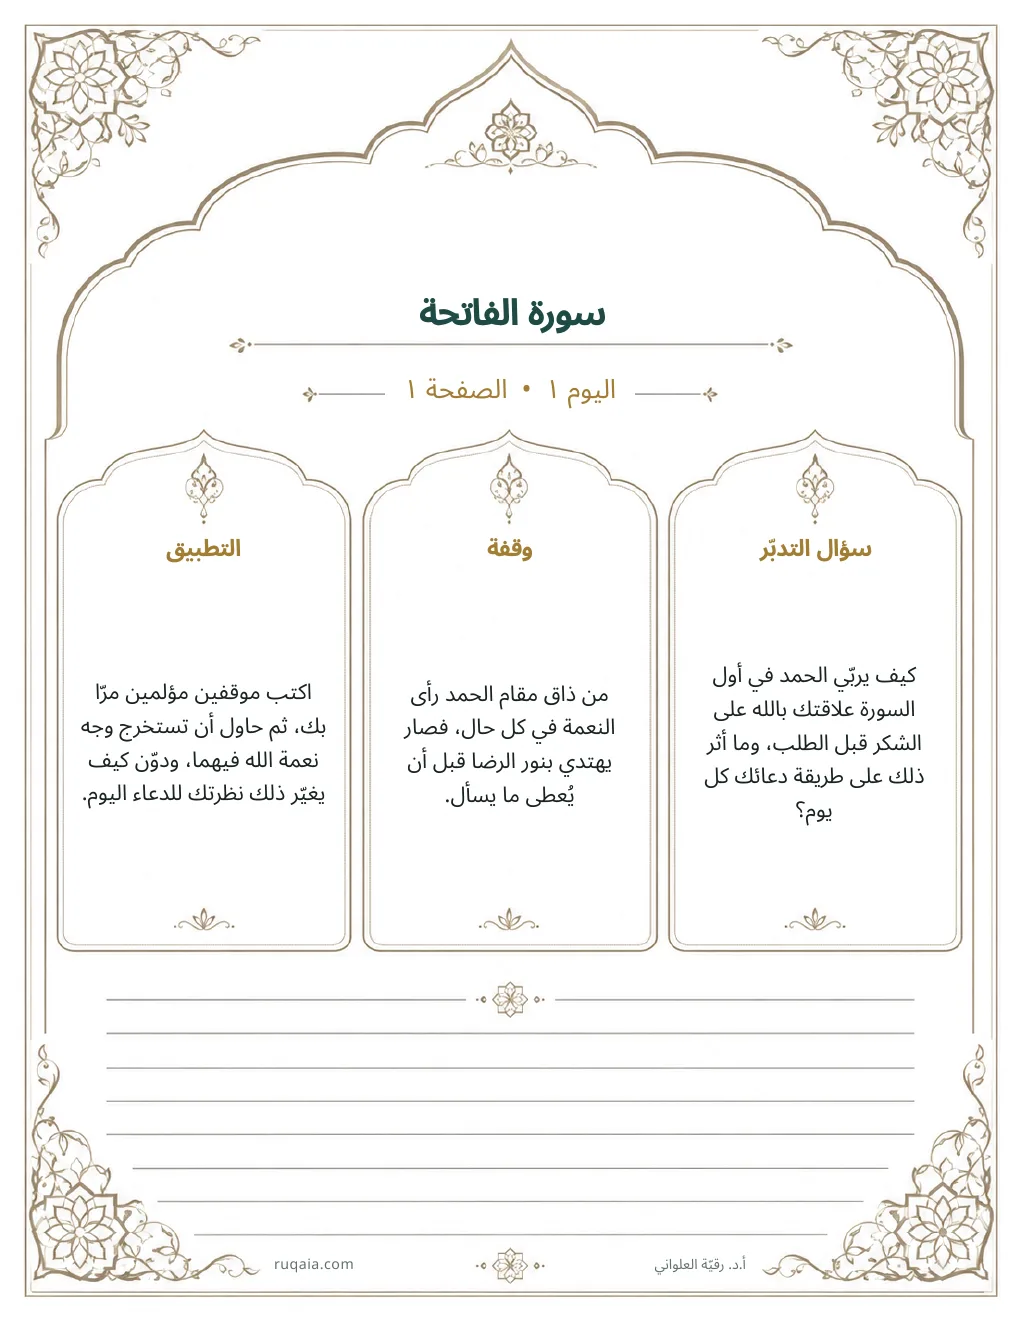 سورة الفاتحة
اليوم ١ • الصفحة ١
سؤال التدبّر
كيف يربّي الحمد في أول
السورة علاقتك بالله على
الشكر قبل الطلب، وما أثر
ذلك على طريقة دعائك كل
يوم؟
وقفة
من ذاق مقام الحمد رأى
النعمة في كل حال، فصار
يهتدي بنور الرضا قبل أن
يُعطى ما يسأل.
التطبيق
اكتب موقفين مؤلمين مرّا
بك، ثم حاول أن تستخرج وجه
نعمة الله فيهما، ودوّن كيف
يغيّر ذلك نظرتك للدعاء اليوم.
أ.د. رقيّة العلواني
ruqaia.com